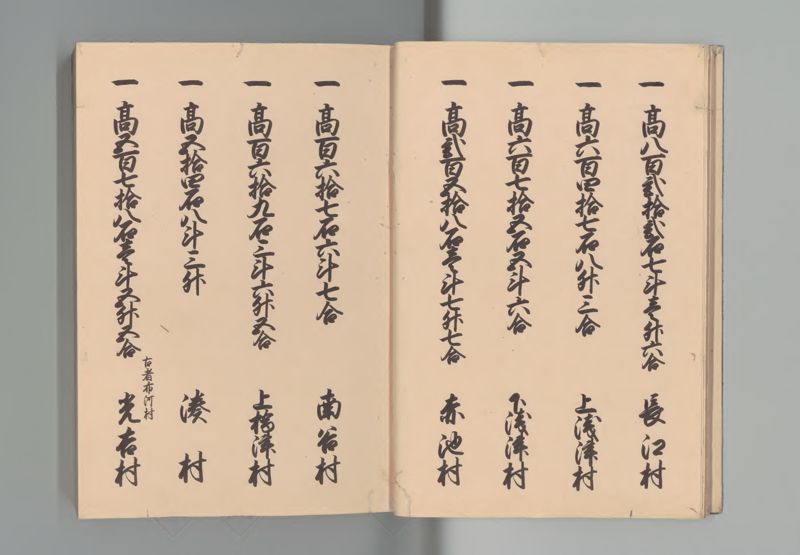 一 高八百弐拾弐石七斗壱升六合 長江村
一 高六百四拾七石八升三合 上浅津村
一 高六百七拾五石五斗六合 下浅津村
一 高弐百五拾八石壱斗七升七合 赤池村
一 高百六拾七石六斗七合 南谷村
一 高百六拾九石三斗六升五合 上橋津村
一 高五拾四石八斗三升 湊村
一 高五百七拾八石壱斗五升五合 光吉村
古者布河村